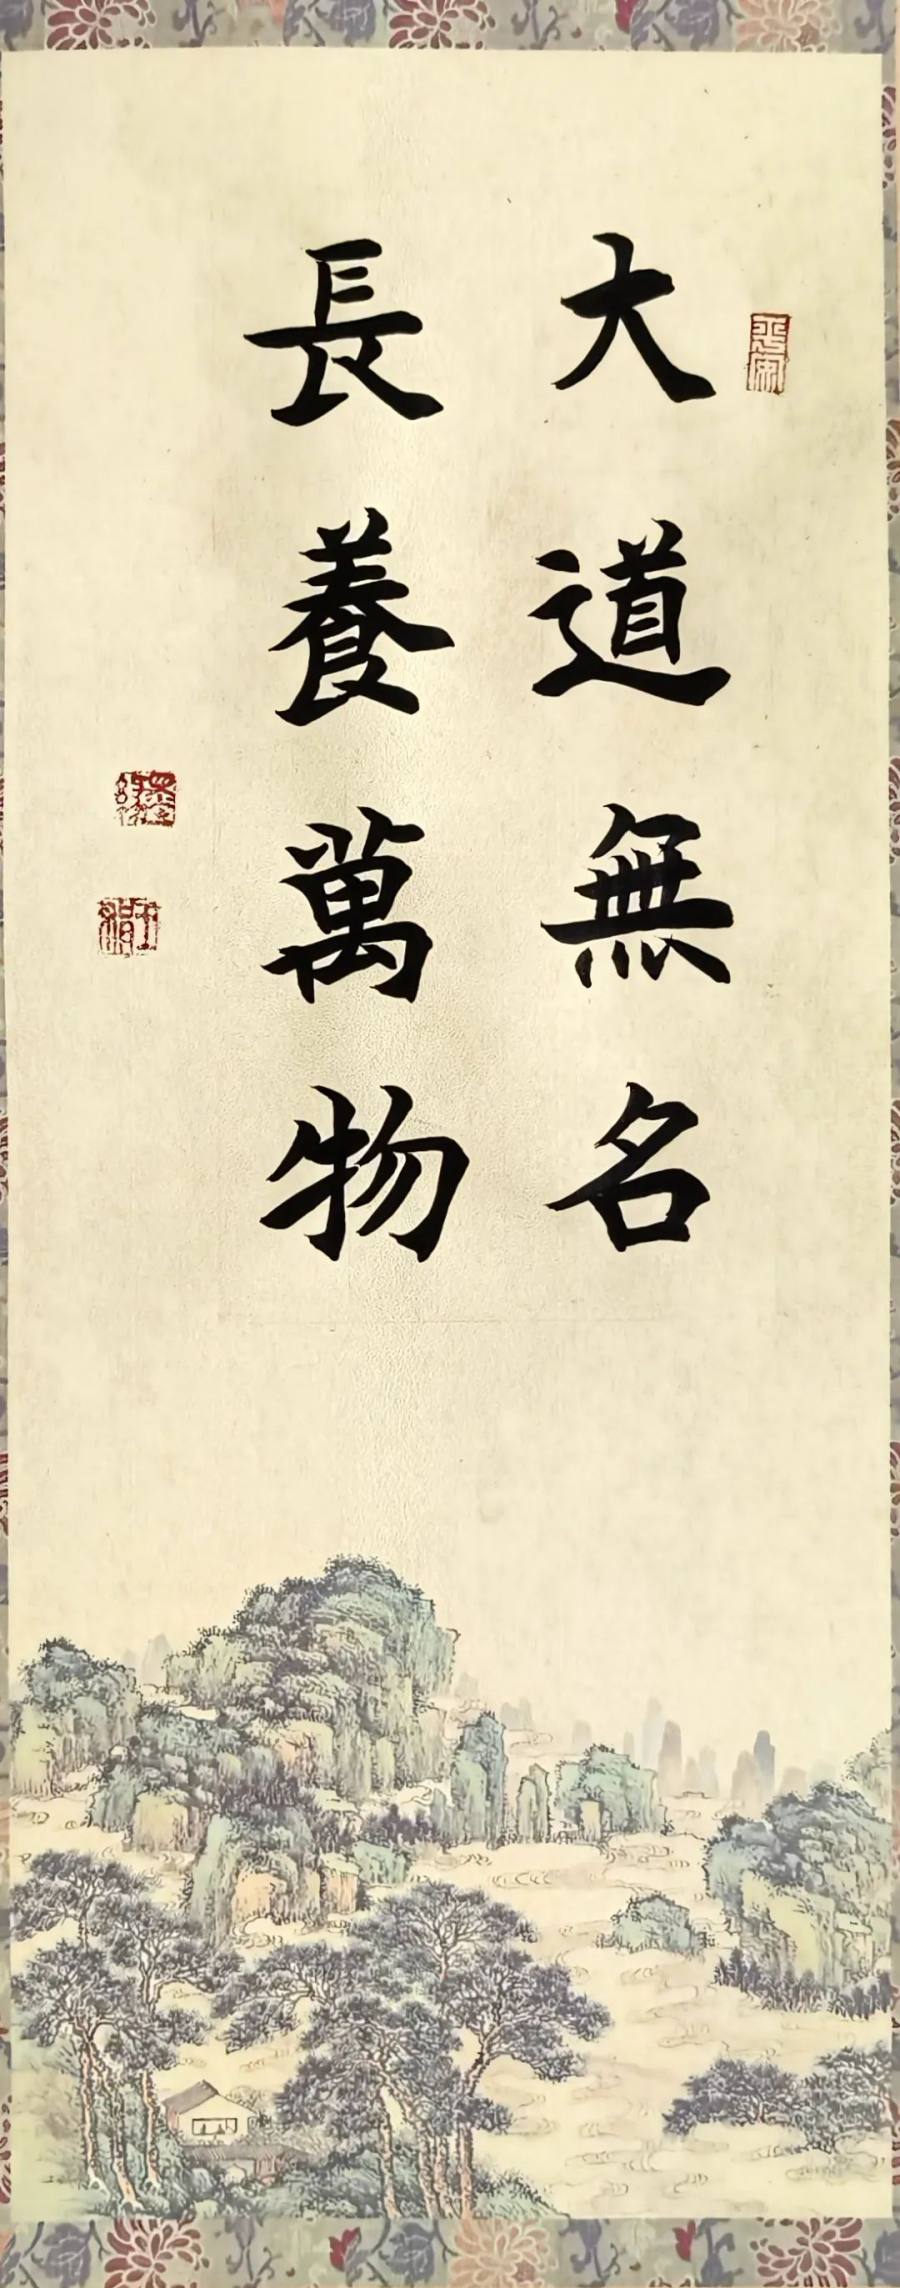 大道無名
長養萬物